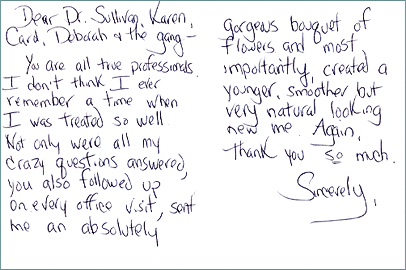 Dear Dr. Sullivan, Karen,
Card, Deborah & the gang -
You are all true professionals.
I don't think I ever
remember a time when
I was treated so well.
Not only were all my
crazy questions answered,
you also followed up
on every office visit, sent
me an absolutely
gorgeous bouquet of
flowers and most
importantly, created a
younger, smoother but
very natural looking
new me. Again,
thank you so much.
Sincerely,